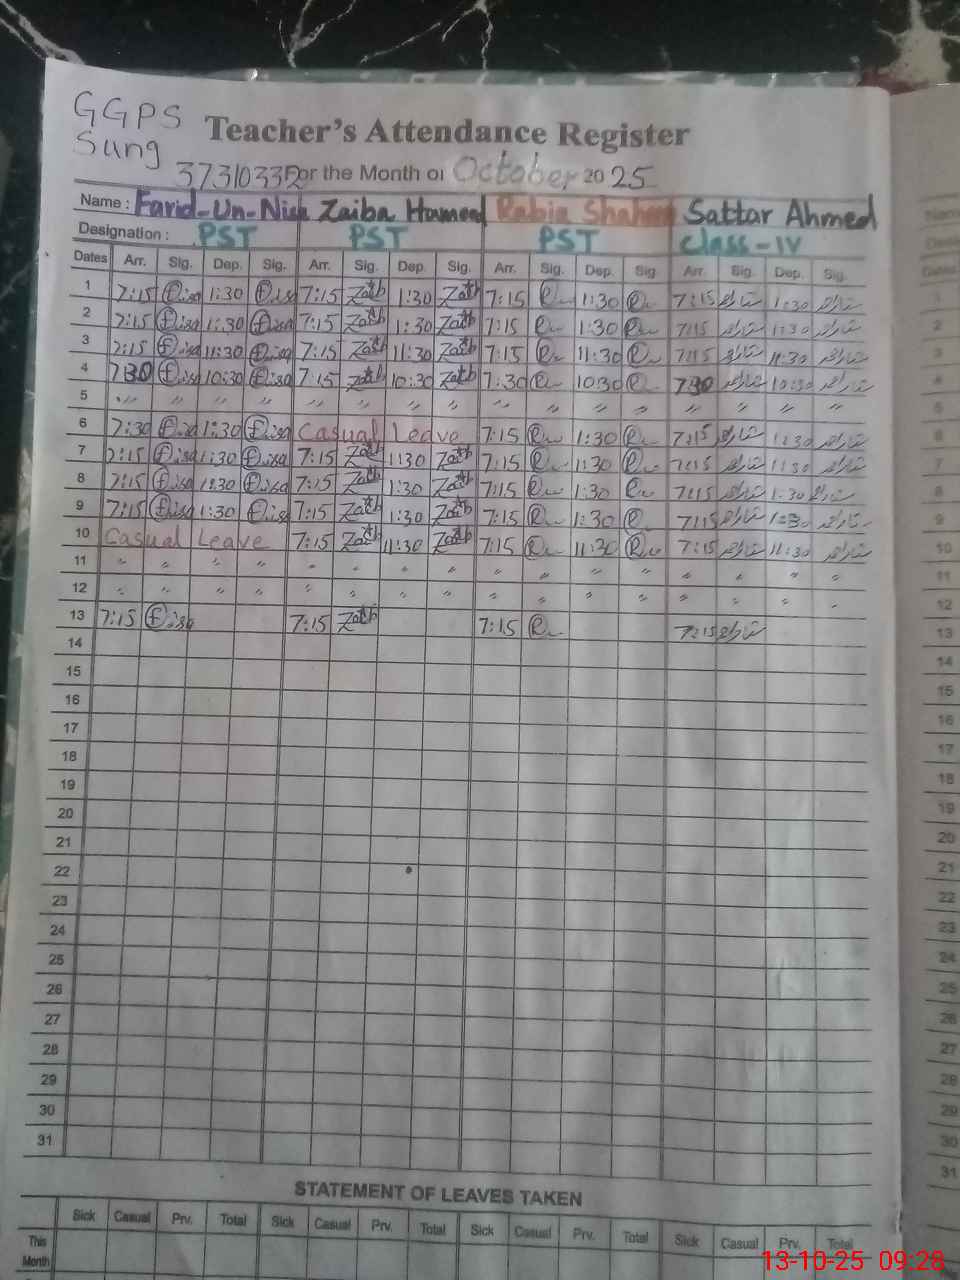 GGPS
Sung
Teacher's Attendance Register
37310332 For the Month of October 2025
Name : Farid-Un-Nisa Zaiba Hameed Rabia Shaheen Sattar Ahmed
Designation : PST PST PST Class-IV
Dates Arr. Sig. Dep. Sig. Arr. Sig. Dep. Sig. Arr. Sig. Dep. Sig. Arr. Sig. Dep. Sig.
1 7:15 1:30 7:15 1:30 7:15 1:30 7:15 1:30
2 7:15 1:30 7:15 1:30 7:15 1:30 7:15 1:30
3 7:15 11:30 7:15 11:30 7:15 11:30 7:15 11:30
4 7:30 10:30 7:15 10:30 7:30 10:30 7:30 10:30
5 " " " " " " " " " " " " " " " "
6 7:30 1:30 Casual Leave 7:15 1:30 7:15 1:30
7 7:15 1:30 7:15 1:30 7:15 1:30 7:15 1:30
8 7:15 1:30 7:15 1:30 7:15 1:30 7:15 1:30
9 7:15 1:30 7:15 1:30 7:15 1:30 7:15 1:30
10 Casual Leave 7:15 11:30 7:15 11:30 7:15 11:30
11 " " " " " " " " " " " " " " " "
12 " " " " " " " " " " " " " " " "
13 7:15 7:15 7:15 7:15
14
15
16
17
18
19
20
21
22
23
24
25
26
27
28
29
30
31
STATEMENT OF LEAVES TAKEN
Sick Casual Prv. Total Sick Casual Prv. Total Sick Casual Prv. Total Sick Casual Prv. Total
This
Month
13-10-25 09:28